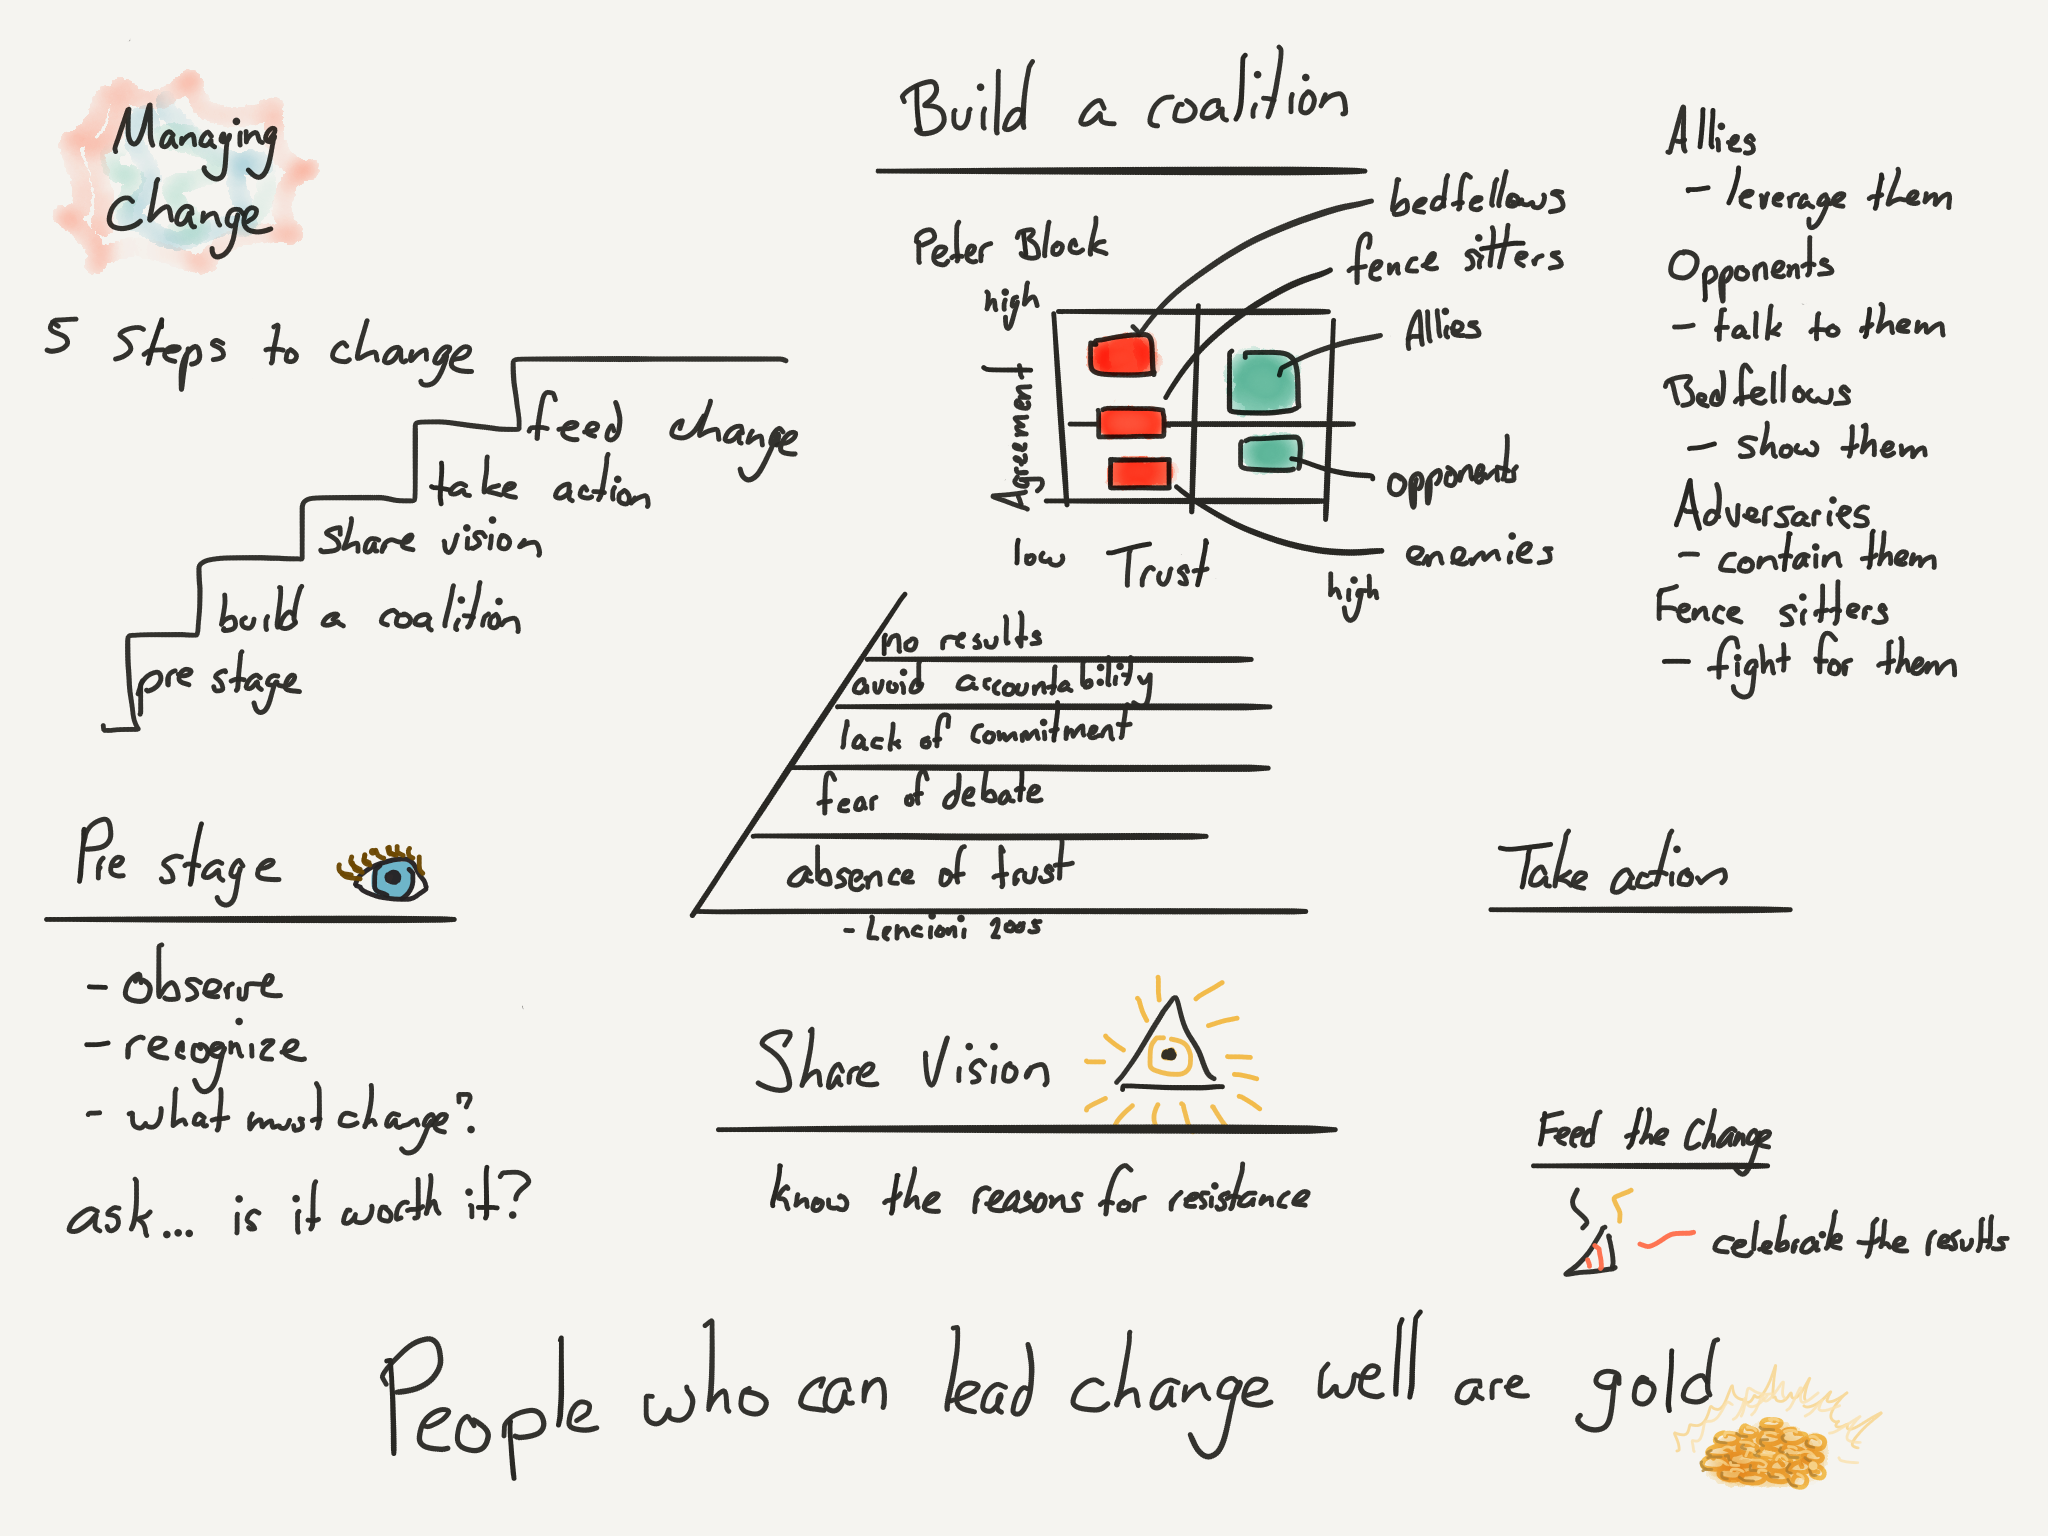 Managing
Change
5 Steps to change
feed change
take action
share vision
build a coalition
pre stage
Pre stage
- observe
- recognize
- what must change?
ask... is it worth it?
Build a coalition
Peter Block
bedfellows
fence sitters
high
Allies
Agreement
opponents
enemies
low Trust
high
no results
avoid accountability
lack of commitment
fear of debate
absence of trust
- Lencioni 2005
Share Vision
know the reasons for resistance
Allies
- leverage them
Opponents
- talk to them
Bedfellows
- show them
Adversaries
- contain them
Fence sitters
- fight for them
Take action
Feed the Change
celebrate the results
People who can lead change well are gold